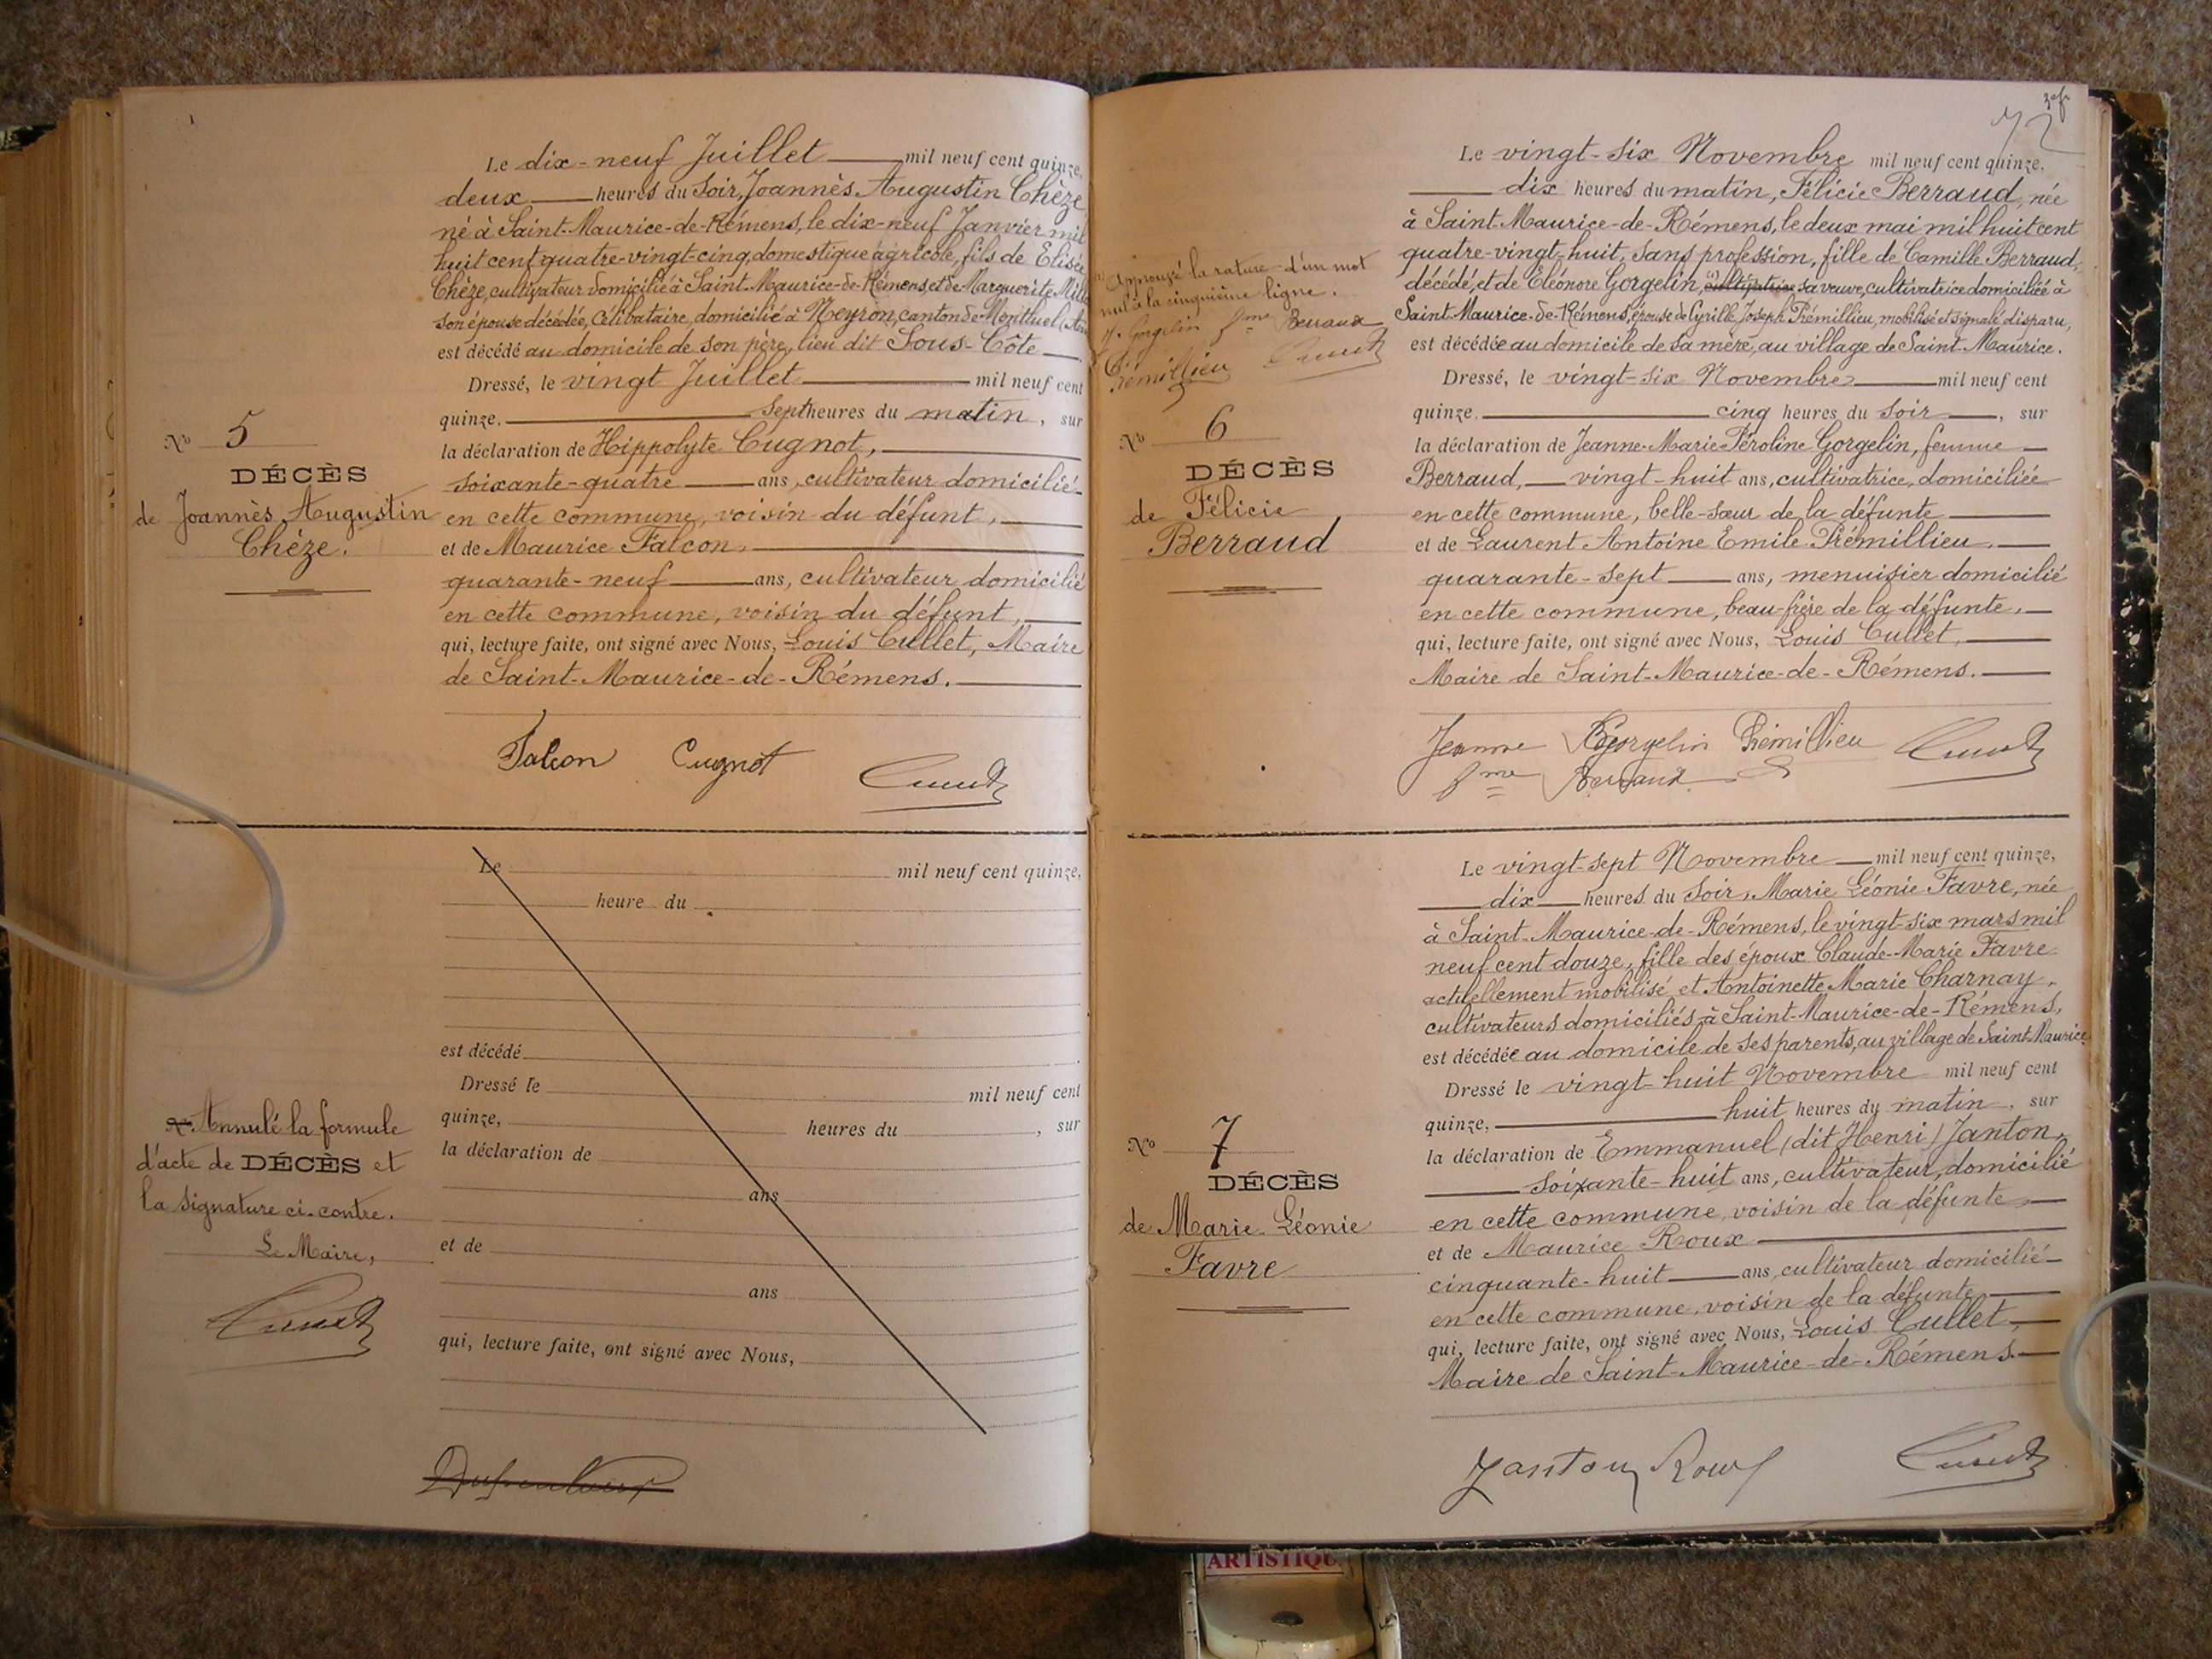 Le dix-neuf Juillet mil neuf cent quinze,
deux heures du soir, Joannès Augustin Chèze
né à Saint-Maurice-de-Rémens, le dix-neuf Janvier mil
huit cent quatre-vingt-cinq, domestique agricole, fils de Elisée
Chèze, cultivateur domicilié à Saint-Maurice-de-Rémens et de Marguerite
son épouse décédée, célibataire, domicilié à Neyron, canton de Montluel (Ain
est décédé au domicile de son père, lieu dit Sous-Côte
Dressé, le vingt Juillet mil neuf cent
quinze. sept heures du matin, sur
la déclaration de Hippolyte Cugnot,
soixante-quatre ans, cultivateur domicilié
en cette commune, voisin du défunt,
et de Maurice Falcon,
quarante-neuf ans, cultivateur domicilié
en cette commune, voisin du défunt,
qui, lecture faite, ont signé avec Nous, Louis Cullet, Maire
de Saint-Maurice-de-Rémens.
N° 5
DÉCÈS
de Joannès Augustin
Chèze.
Falcon Cugnot
Le mil neuf cent quinze,
heure du
est décédé
Dressé le mil neuf cent
quinze, heures du , sur
la déclaration de
ans
et de
ans
qui, lecture faite, ont signé avec Nous,
Annulé la formule
d'acte de DÉCÈS et
la signature ci-contre.
Le Maire,
72
Le vingt-six Novembre mil neuf cent quinze.
dix heures du matin, Félicie Berraud, née
à Saint-Maurice-de-Rémens, le deux mai mil huit cent
quatre-vingt-huit, sans profession, fille de Camille Berraud,
décédé, et de Éléonore Gorgelin, (1) cultivatrice sa veuve, cultivatrice domiciliée à
Saint-Maurice-de-Rémens, épouse de Cyrille Joseph Prémillieu, mobilisé et signalé disparu,
est décédée au domicile de sa mère, au village de Saint-Maurice.
Dressé, le vingt-six Novembre mil neuf cent
quinze. cinq heures du soir, sur
la déclaration de Jeanne-Marie Péroline Gorgelin, femme
Berraud, vingt-huit ans, cultivatrice, domiciliée
en cette commune, belle-sœur de la défunte
et de Laurent Antoine Emile Prémillieu,
quarante-sept ans, menuisier domicilié
en cette commune, beau-frère de la défunte,
qui, lecture faite, ont signé avec Nous, Louis Cullet,
Maire de Saint-Maurice-de-Rémens.
(1) Approuvé la rature d'un mot
nul à la cinquième ligne.
J. Gorgelin fme Berraud
Prémillieu
N° 6
DÉCÈS
de Félicie
Berraud
Jeanne Gorgelin Prémillieu
fme Berraud
Le vingt-sept Novembre mil neuf cent quinze,
dix heures du soir, Marie Léonie Favre, née
à Saint-Maurice-de-Rémens, le vingt-six mars mil
neuf cent douze, fille des époux Claude-Marie Favre
actuellement mobilisé et Antoinette Marie Charnay,
cultivateurs domiciliés à Saint-Maurice-de-Rémens,
est décédée au domicile de ses parents, au village de Saint-Maurice
Dressé le vingt-huit Novembre mil neuf cent
quinze, huit heures du matin, sur
la déclaration de Emmanuel (dit Henri) Janton,
soixante-huit ans, cultivateur, domicilié
en cette commune, voisin de la défunte,
et de Maurice Roux
cinquante-huit ans, cultivateur domicilié
en cette commune, voisin de la défunte,
qui, lecture faite, ont signé avec Nous, Louis Cullet,
Maire de Saint-Maurice-de-Rémens.
N° 7
DÉCÈS
de Marie Léonie
Favre
Janton Roux
ARTISTIQU